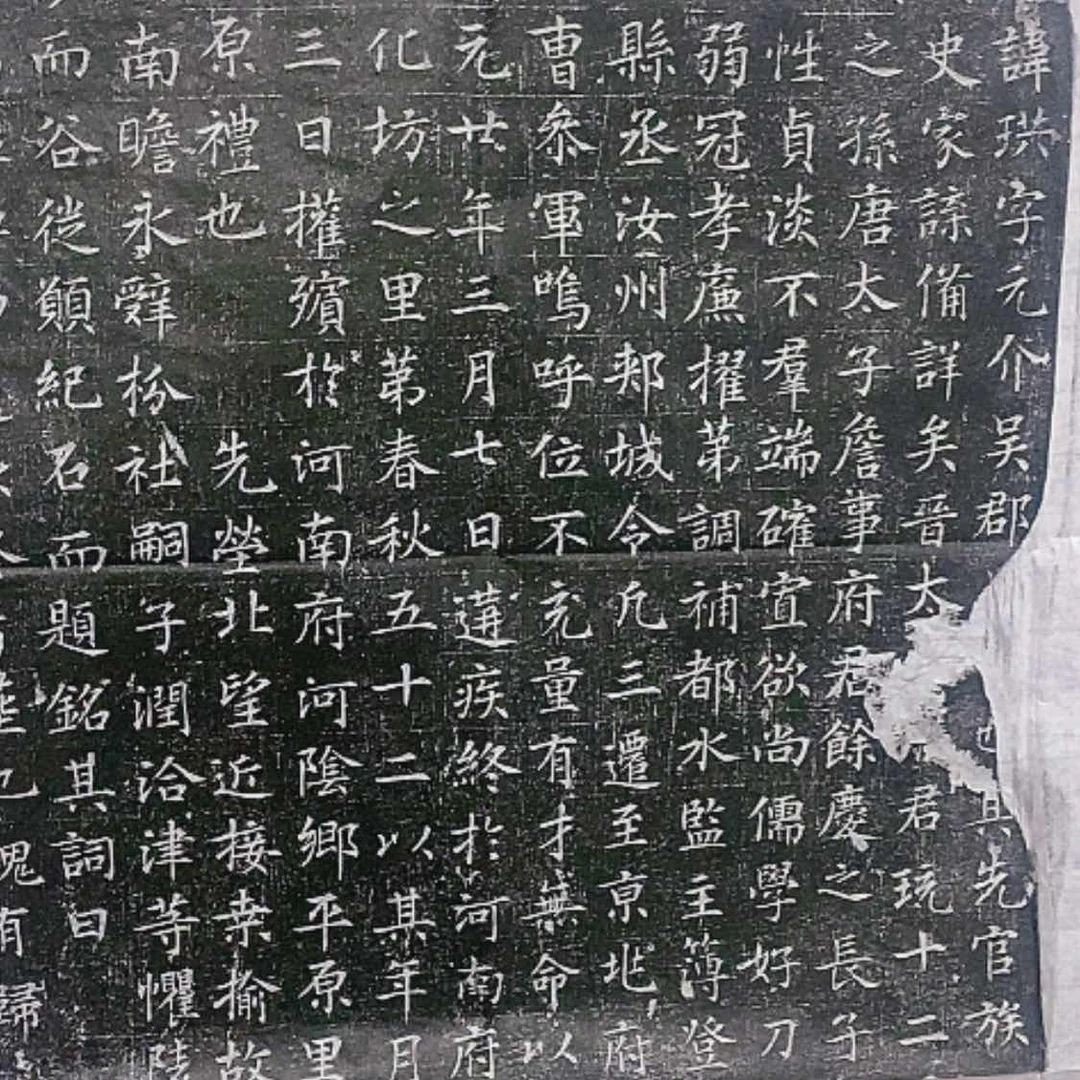 諱珙字元介吳郡也其先官族
史家諜備詳矣晉太君玩十二
之孫唐太子詹事府君餘慶之長子
性貞淡不羣端確宣欲尚儒學好刀
弱冠孝廉擢苐調補都水監主簿登
縣丞汝州郟城令凢三遷至京兆府
曹叅軍嗚呼位不充量有才無命以
元廿年三月七日遘疾終於河南府
化坊之里苐春秋五十二以其年月
三日權殯於河南府河陰鄉平原里
原禮也先塋北望近接桒榆故
南瞻永辤枌社嗣子潤洽津等懼陵
而谷徙顚紀石而題銘其詞曰
也愧有歸